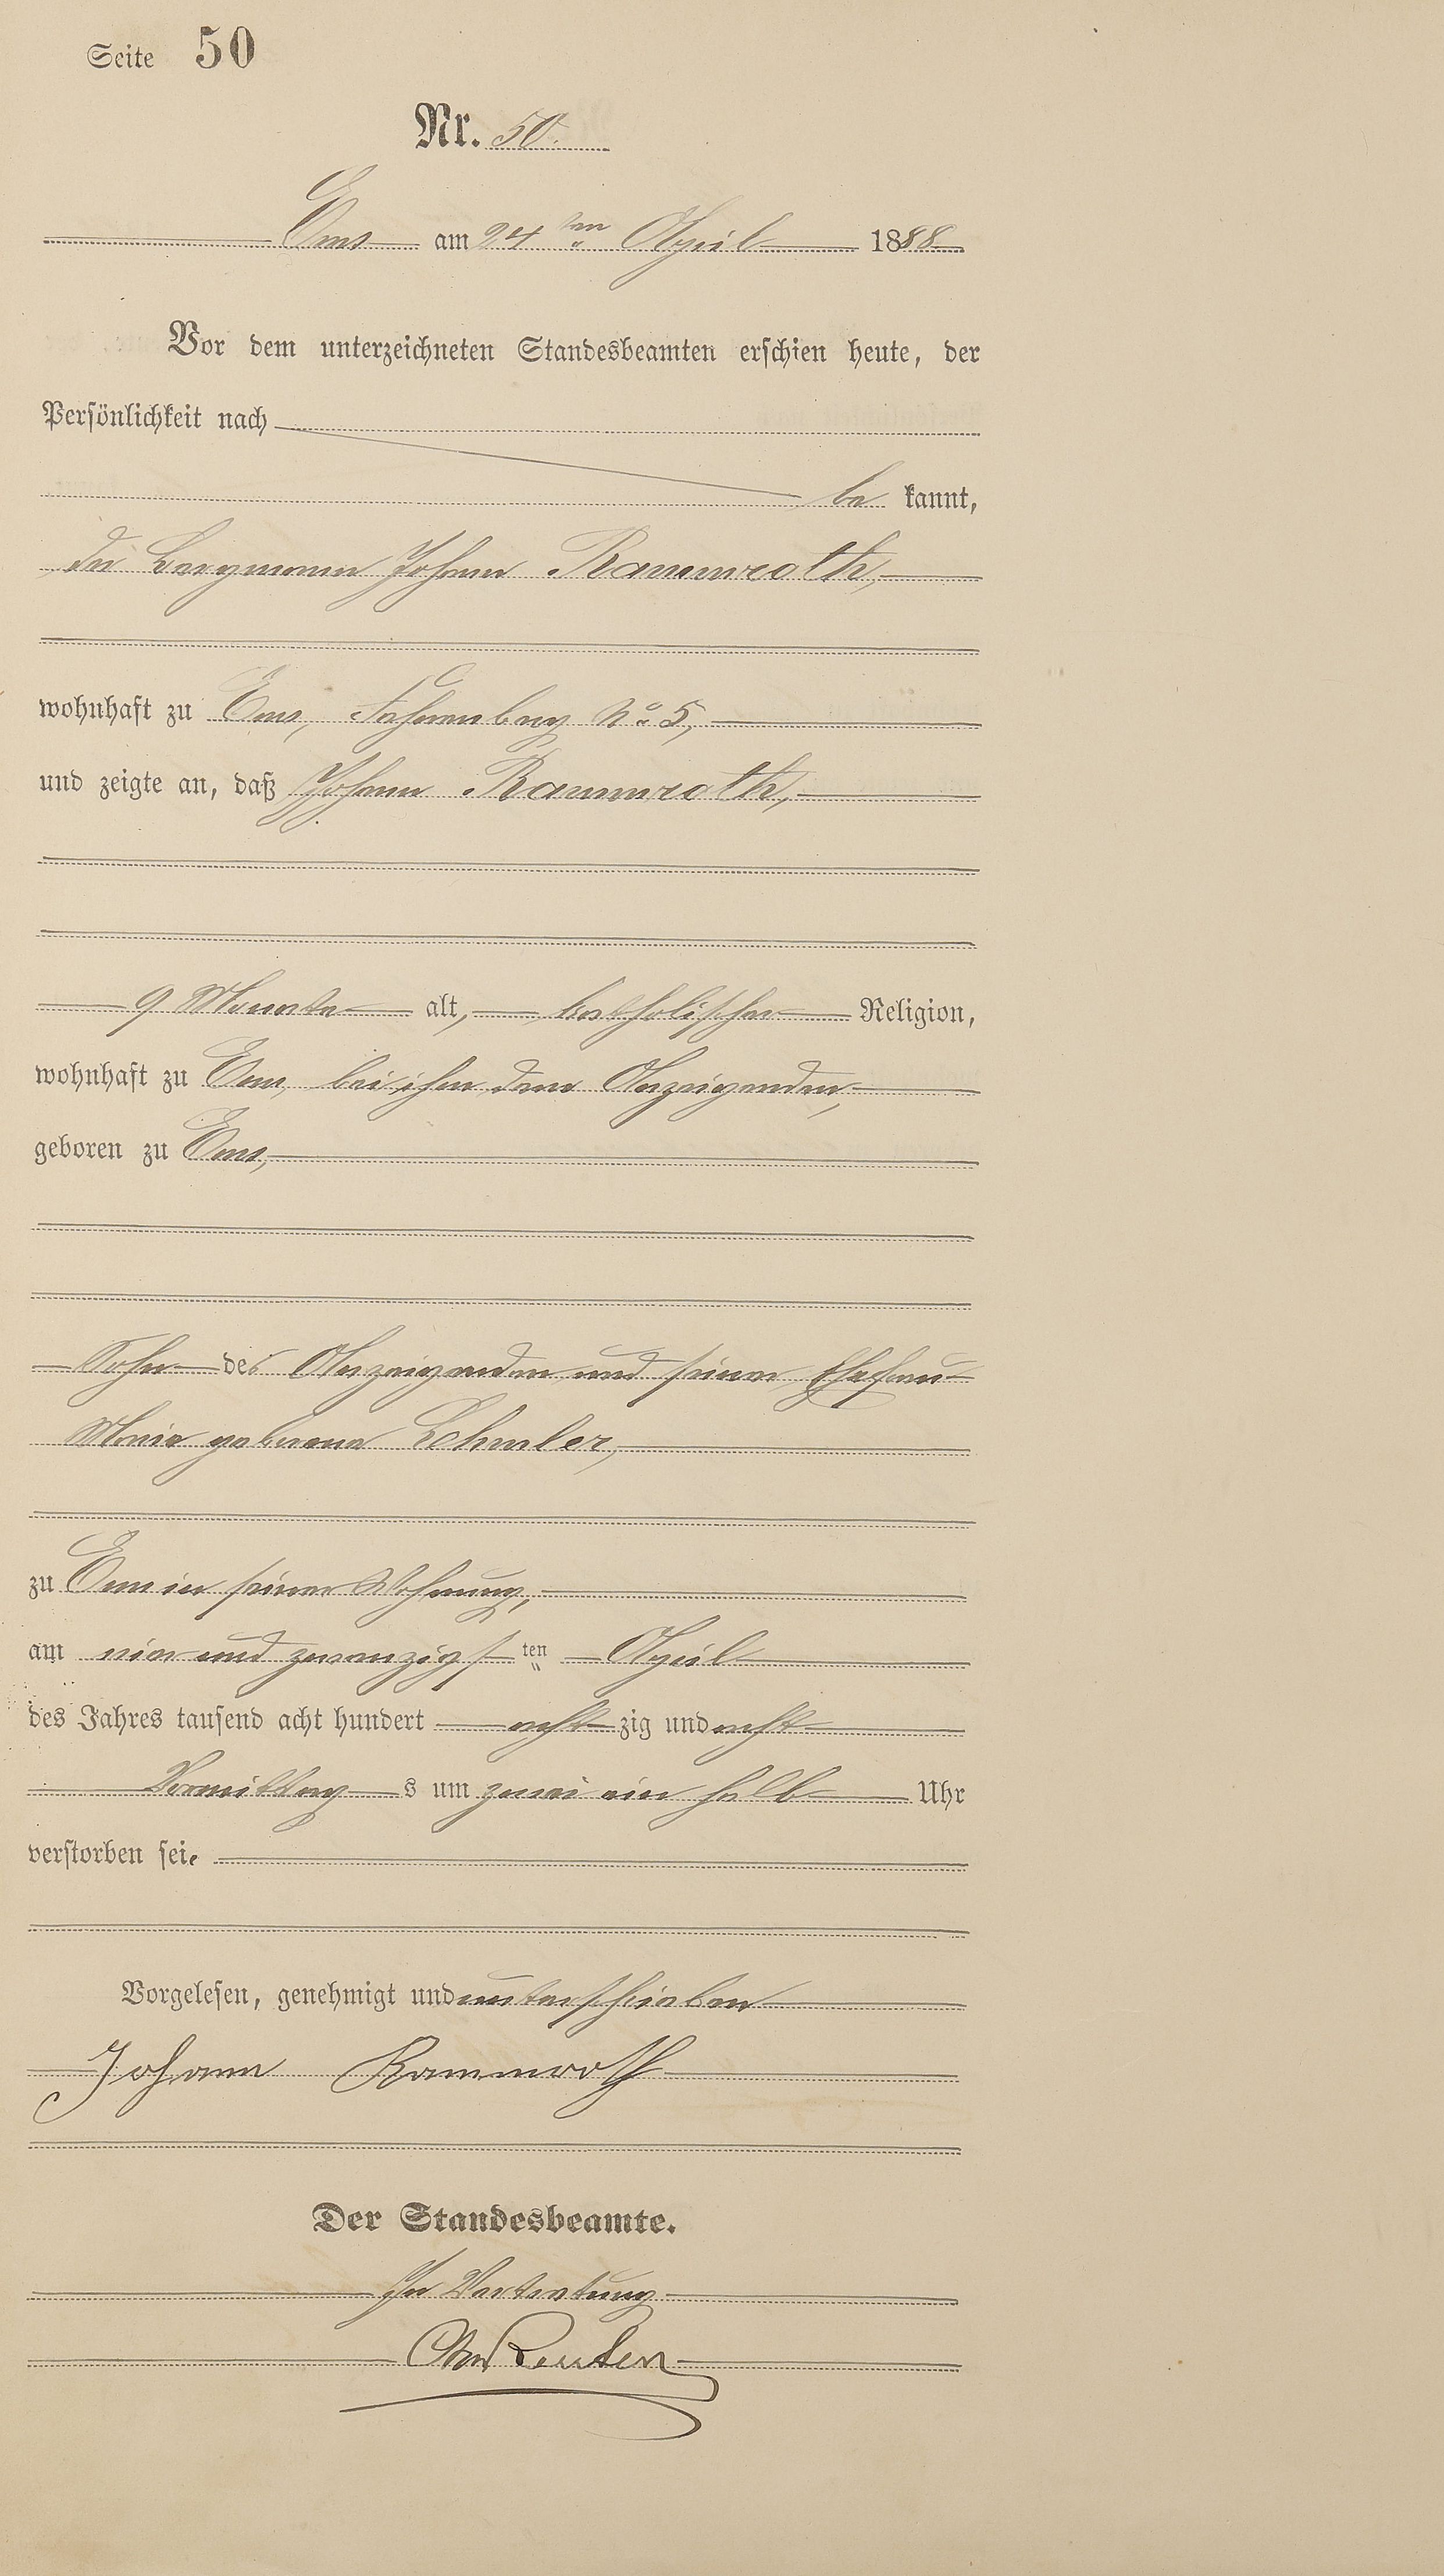 Seite 50
Nr. 50.
Ems am 24ten April 1888
Vor dem unterzeichneten Standesbeamten erschien heute, der
Persönlichkeit nach
be kannt,
der Bergmann Johann Rammroth,
wohnhaft zu Ems, No 5,
und zeigte an, daß Johann Rammroth,
9 Monate alt, katholischer Religion,
wohnhaft zu Ems, bei ihm dem Anzeigenden,
geboren zu Ems,
Sohn des Anzeigenden und seiner Ehefrau
geborene
zu Ems in seiner Wohnung,
am ein und zwanzigsten April
des Jahres tausend acht hundert acht zig und acht
Vormittag s um zwei ein halb Uhr
verstorben sei.
Vorgelesen, genehmigt und unterschrieben
Johann Rammroth
Der Standesbeamte.
In Vertretung